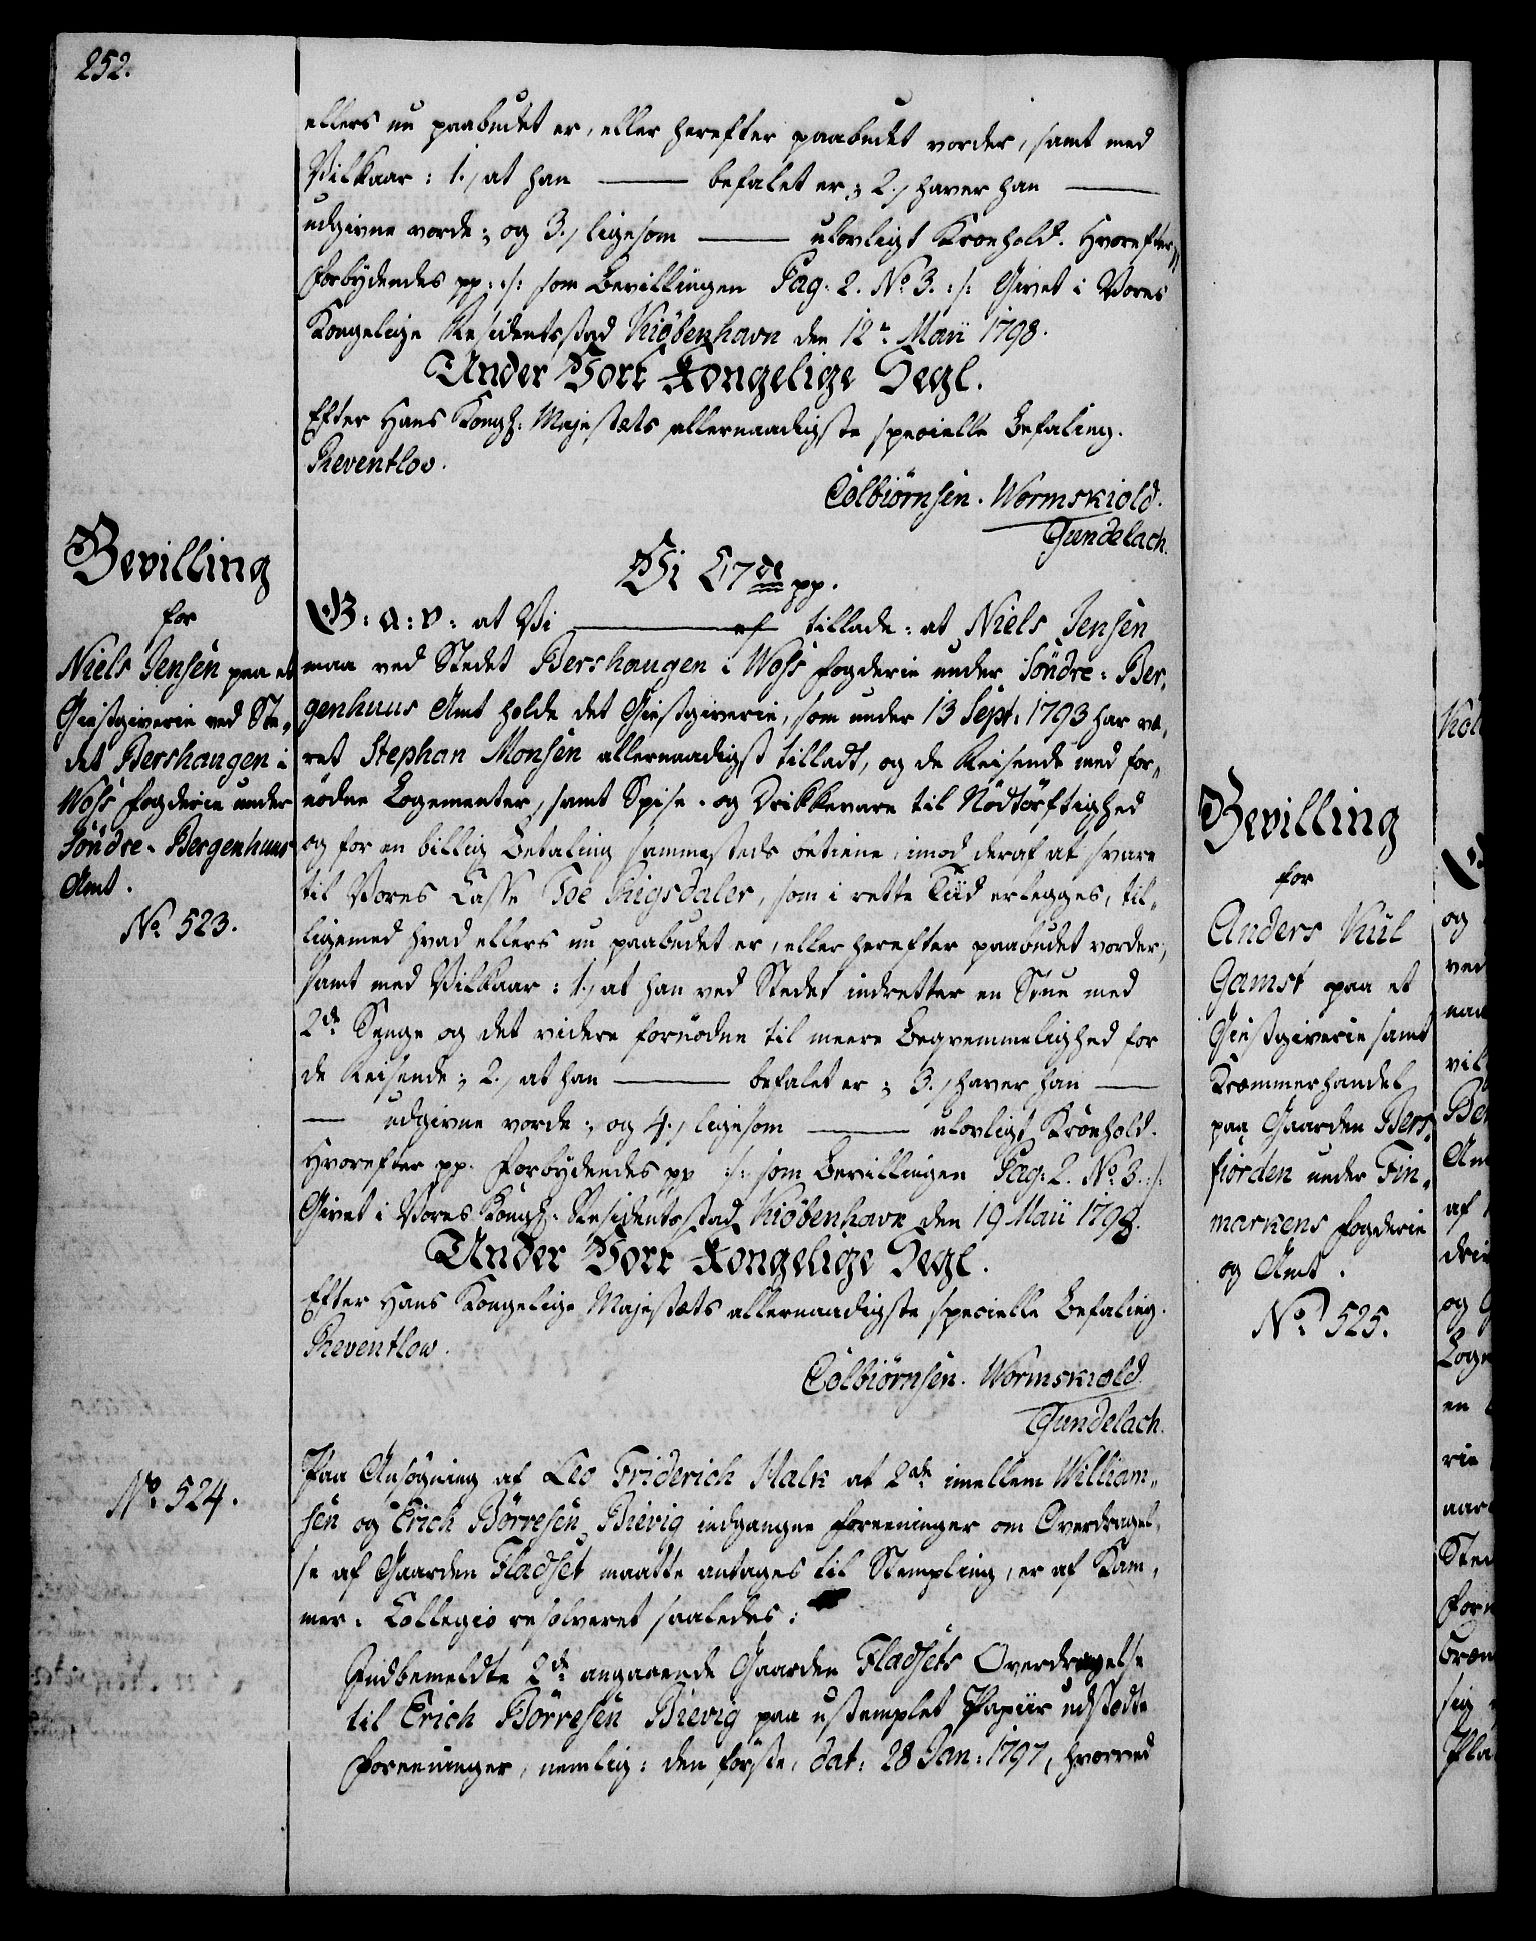 252.
ellers nu paabudet er, eller herefter paabudet vorder, samt med
Vilkaar: 1., at han ——— befalet er; 2., haver han ———
udgivne vorde; og 3., ligesom ——— ulovligt Kroehold. Hvorefter
forbydendes pp: :/: som Bevillingen Pag. 2. No. 3. :/: Givet i Vores
Kongelige Residentsstad Kiöbenhavn den 12te Maii 1798.
Under Vort Kongelige Segl.
Efter Hans Kongl: Majestæts allernaadigste specielle Befaling.
Reventlov.
Colbiörnsen. Wormskiold.
Gundelach.
Bevilling
for
Niels Jensen paa et
Giestgiverie ved Ste-
det Bershaugen i
Woss Fogderie under
Söndre-Bergenhuus
Amt.
No. 523.
Vi C 7de pp.
G: A: V: at Vi ——— tillade: at Niels Jensen
maa ved Stedet Bershaugen i Woss Fogderie under Söndre-Ber-
genhuus Amt holde det Giestgiverie, som under 13 Sept: 1793 har væ-
ret Stephan Monsen allernaadigst tilladt, og de Reisende med for-
nödne Logementer, samt Spise- og Drikkevare til Nödtörftighed
og for en billig Betaling sammesteds betiene, imod deraf at svare
til Vores Casse Toe Rigsdaler, som i rette Tiid erlegges, til-
ligemed hvad ellers nu paabudet er, eller herefter paabudet vorder,
samt med Vilkaar: 1., at han ved Stedet indretter en Stue med
2de Senge og det videre fornödne til meere Beqvemmelighed for
de Reisende; 2., at han ——— befalet er; 3., haver han ——
— udgivne vorde; og 4., ligesom ——— ulovligt Kroehold.
Hvorefter pp. Forbydendes pp :/: som Bevillingen Pag: 2. No. 3. :/:
Givet i Vores Kongl. Residentsstad Kiöbenhavn den 19 Maii 1798.
Under Vort Kongelige Segl.
Efter Hans Kongelige Majestæts allernaadigste specielle Befaling.
Reventlow.
Colbiörnsen. Wormskiold.
Gundelach.
No. 524.
Paa Ansögning af Leo Friderich Halk at 2de imellem William-
sen og Erich Börresen Bievig indgangne Foreeninger om Overdragel-
se af Gaarden Fladset maatte antages til Stempling, er af Kam-
mer-Collegio resolveret saaledes:
Indbemeldte 2de angaaende Gaarden Fladsets Overdragelse
til Erich Börresen Bievig paa ustemplet Papiir udstædte
Foreeninger, nemlig: den förste, dat: 28 Jan: 1797, hvorved
Bevilling
for
Anders Kiil
Gamst paa et
Giestgiverie samt
Kræmmerhandel
paa Gaarden Bers-
fiorden under Fin-
markens Fogderie
og Amt.
No. 525.